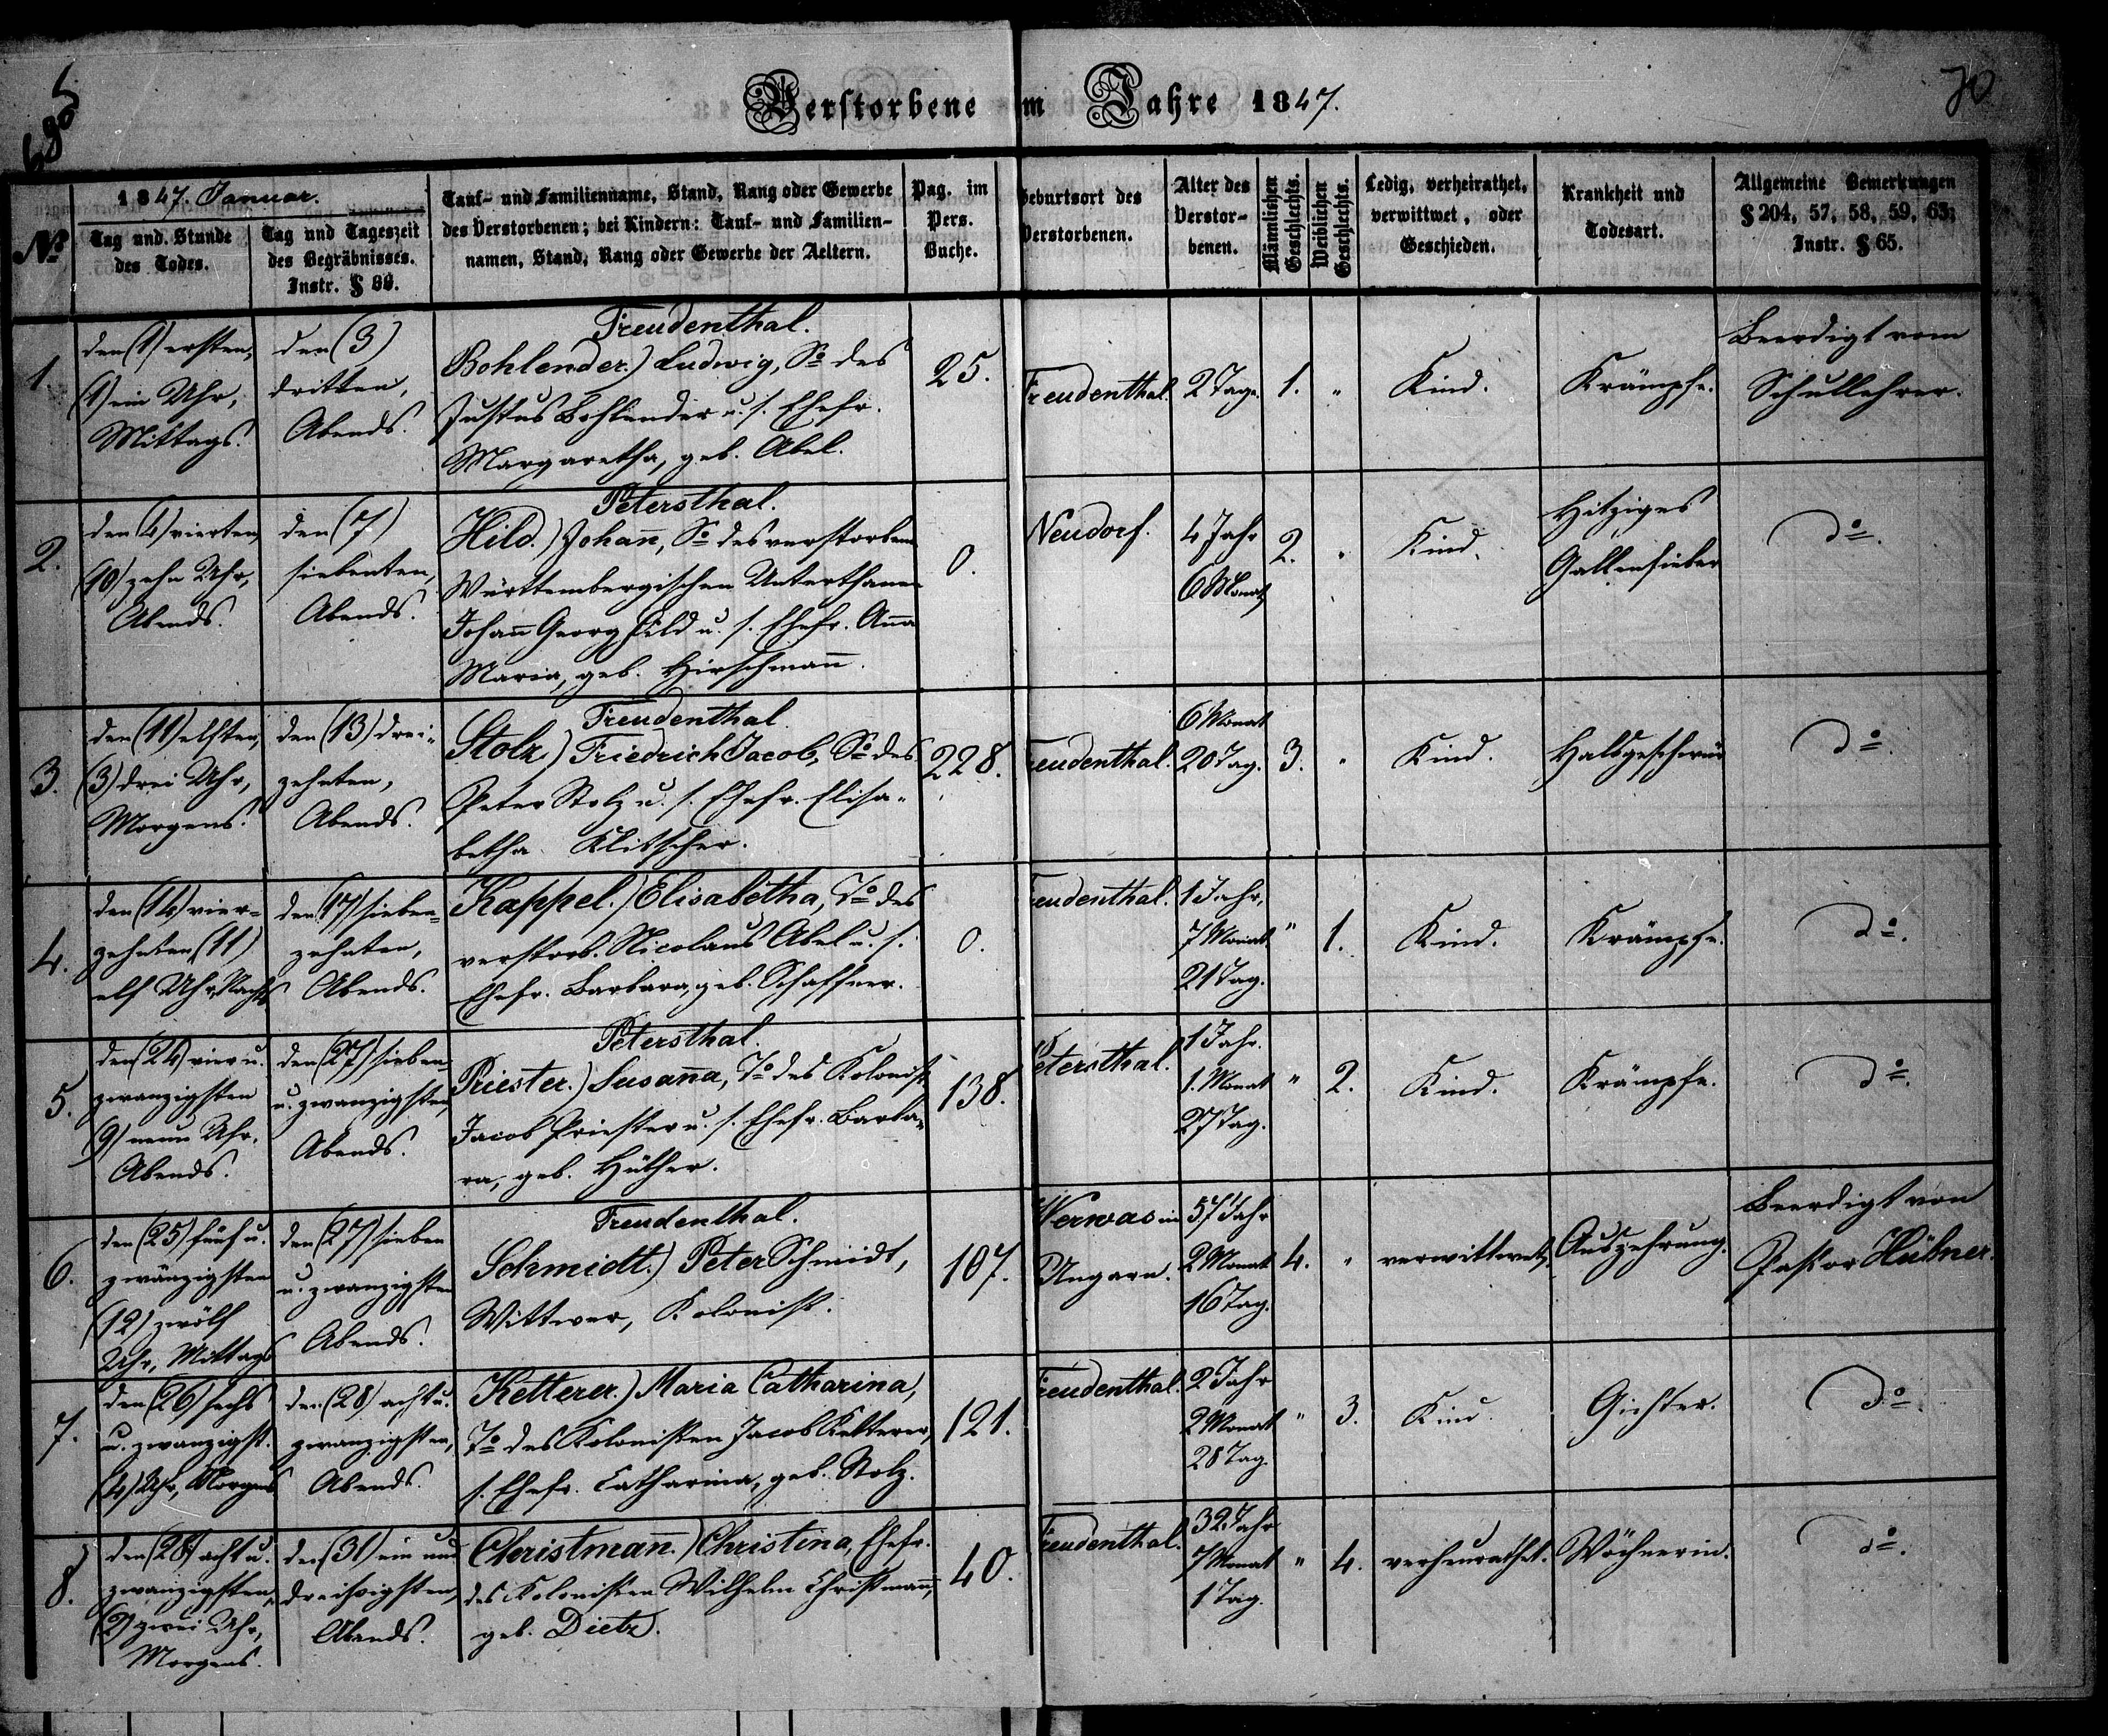 685
70
Verstorbene im Jahre 1847.
№
1847. Januar.
Tag und Stunde
des Todes.
Tag und Tageszeit
des Begräbnisses.
Instr. § 99.
Tauf- und Familienname, Stand, Rang oder Gewerbe
des Verstorbenen; bei Kindern: Tauf- und Familien-
namen, Stand, Rang oder Gewerbe der Aeltern.
Pag. im
Pers.
Buche.
Geburtsort des
Verstorbenen.
Alter des
Verstor-
benen.
Männlichen
Geschlechts.
Weiblichen
Geschlechts.
Ledig, verheirathet,
verwittwet, oder
Geschieden.
Krankheit und
Todesart.
Allgemeine Bemerkungen
§ 204, 57, 58, 59, 63;
Instr. § 65.
1.
den (1) ersten,
(1) ein Uhr,
Mittags.
den (3)
dritten,
Abends.
Freudenthal.
Bohlender.) Ludwig, So des
Justus Bohlender u. s. Ehefr.
Margaretha, geb. Abel.
25.
Freudenthal.
2 Tage.
1.
"
Kind.
Krämpfe.
Beerdigt vom
Schullehrer.
2.
den (4) vierten,
(10) zehn Uhr,
Abends.
den (7)
siebenten,
Abends.
Petersthal.
Hild.) Johan̄, So des verstorbenen
Württembergischen Unterthanen
Johan̄ Georg Hild u. s. Ehefr. An̄a
Maria, geb. Hirschman̄.
0.
Neudorf.
4 Jahr
6 Monat
2.
"
Kind.
Hitziges
Gallenfieber
do.
3.
den (11) elften,
(3) drei Uhr,
Morgens.
den (13) drei-
zehnten,
Abends.
Freudenthal.
Stolz.) Friedrich Jacob, So des
Peter Stolz u. s. Ehefr. Elisa-
betha Klitscher.
228.
Freudenthal.
6 Monat
20 Tag.
3.
"
Kind.
Halsgeschwür
do.
4.
den (14) vier-
zehnten (11)
elf Uhr, Nachts
den (17) sieben-
zehnten,
Abends.
Kappel.) Elisabetha, To des
verstorb. Nicolaus Abel u. s.
Ehefr. Barbara, geb. Schaffner.
0.
Freudenthal.
1 Jahr,
7 Monat
21 Tag.
"
1.
Kind.
Krämpfe.
do.
5.
den (24) vier u.
zwanzigsten
(9) neun Uhr.
Abends.
den (27) sieben-
u. zwanzigsten,
Abends.
Petersthal.
Priester.) Susan̄a, To des Kolonist
Jacob Priester u. s. Ehefr. Barba-
ra, geb. Hüther.
138.
Petersthal.
1 Jahr.
1. Monat
27 Tag.
"
2.
Kind.
Krämpfe.
do.
6.
den (25) fünf u.
zwanzigsten
(12) zwölf
Uhr, Mittags
den (27) sieben
u. zwanzigsten
Abends.
Freudenthal.
Schmidt.) Peter Schmidt,
Wittwer, Kolonist.
107.
Werwas in
Ungarn.
57 Jahr
2 Monat
16 Tag.
4.
"
verwittwet,
Auszehrung.
Beerdigt von
Pastor Hübner.
7.
den (26) sechs
u. zwanzigst.
(4) Uhr, Morgens
den (28) acht u.
zwanzigsten,
Abends.
Ketterer.) Maria Catharina,
To des Kolonisten Jacob Ketterer,
s. Ehefr. Catharina, geb. Stolz.
121.
Freudenthal.
2 Jahr
2 Monat
28 Tag.
"
3.
Kind.
Gichter.
do.
8.
den (28) acht u.
zwanzigsten,
(2) zwei Uhr,
Morgens.
den (31) ein und
dreissigsten,
Abends.
Christman̄.) Christina, Ehefr.
des Kolonisten Wilhelm Christman̄,
geb. Dietz.
40.
Freudenthal.
32 Jahr
7 Monat
1 Tag.
"
4.
verheurathet.
Wöchnerin.
do.